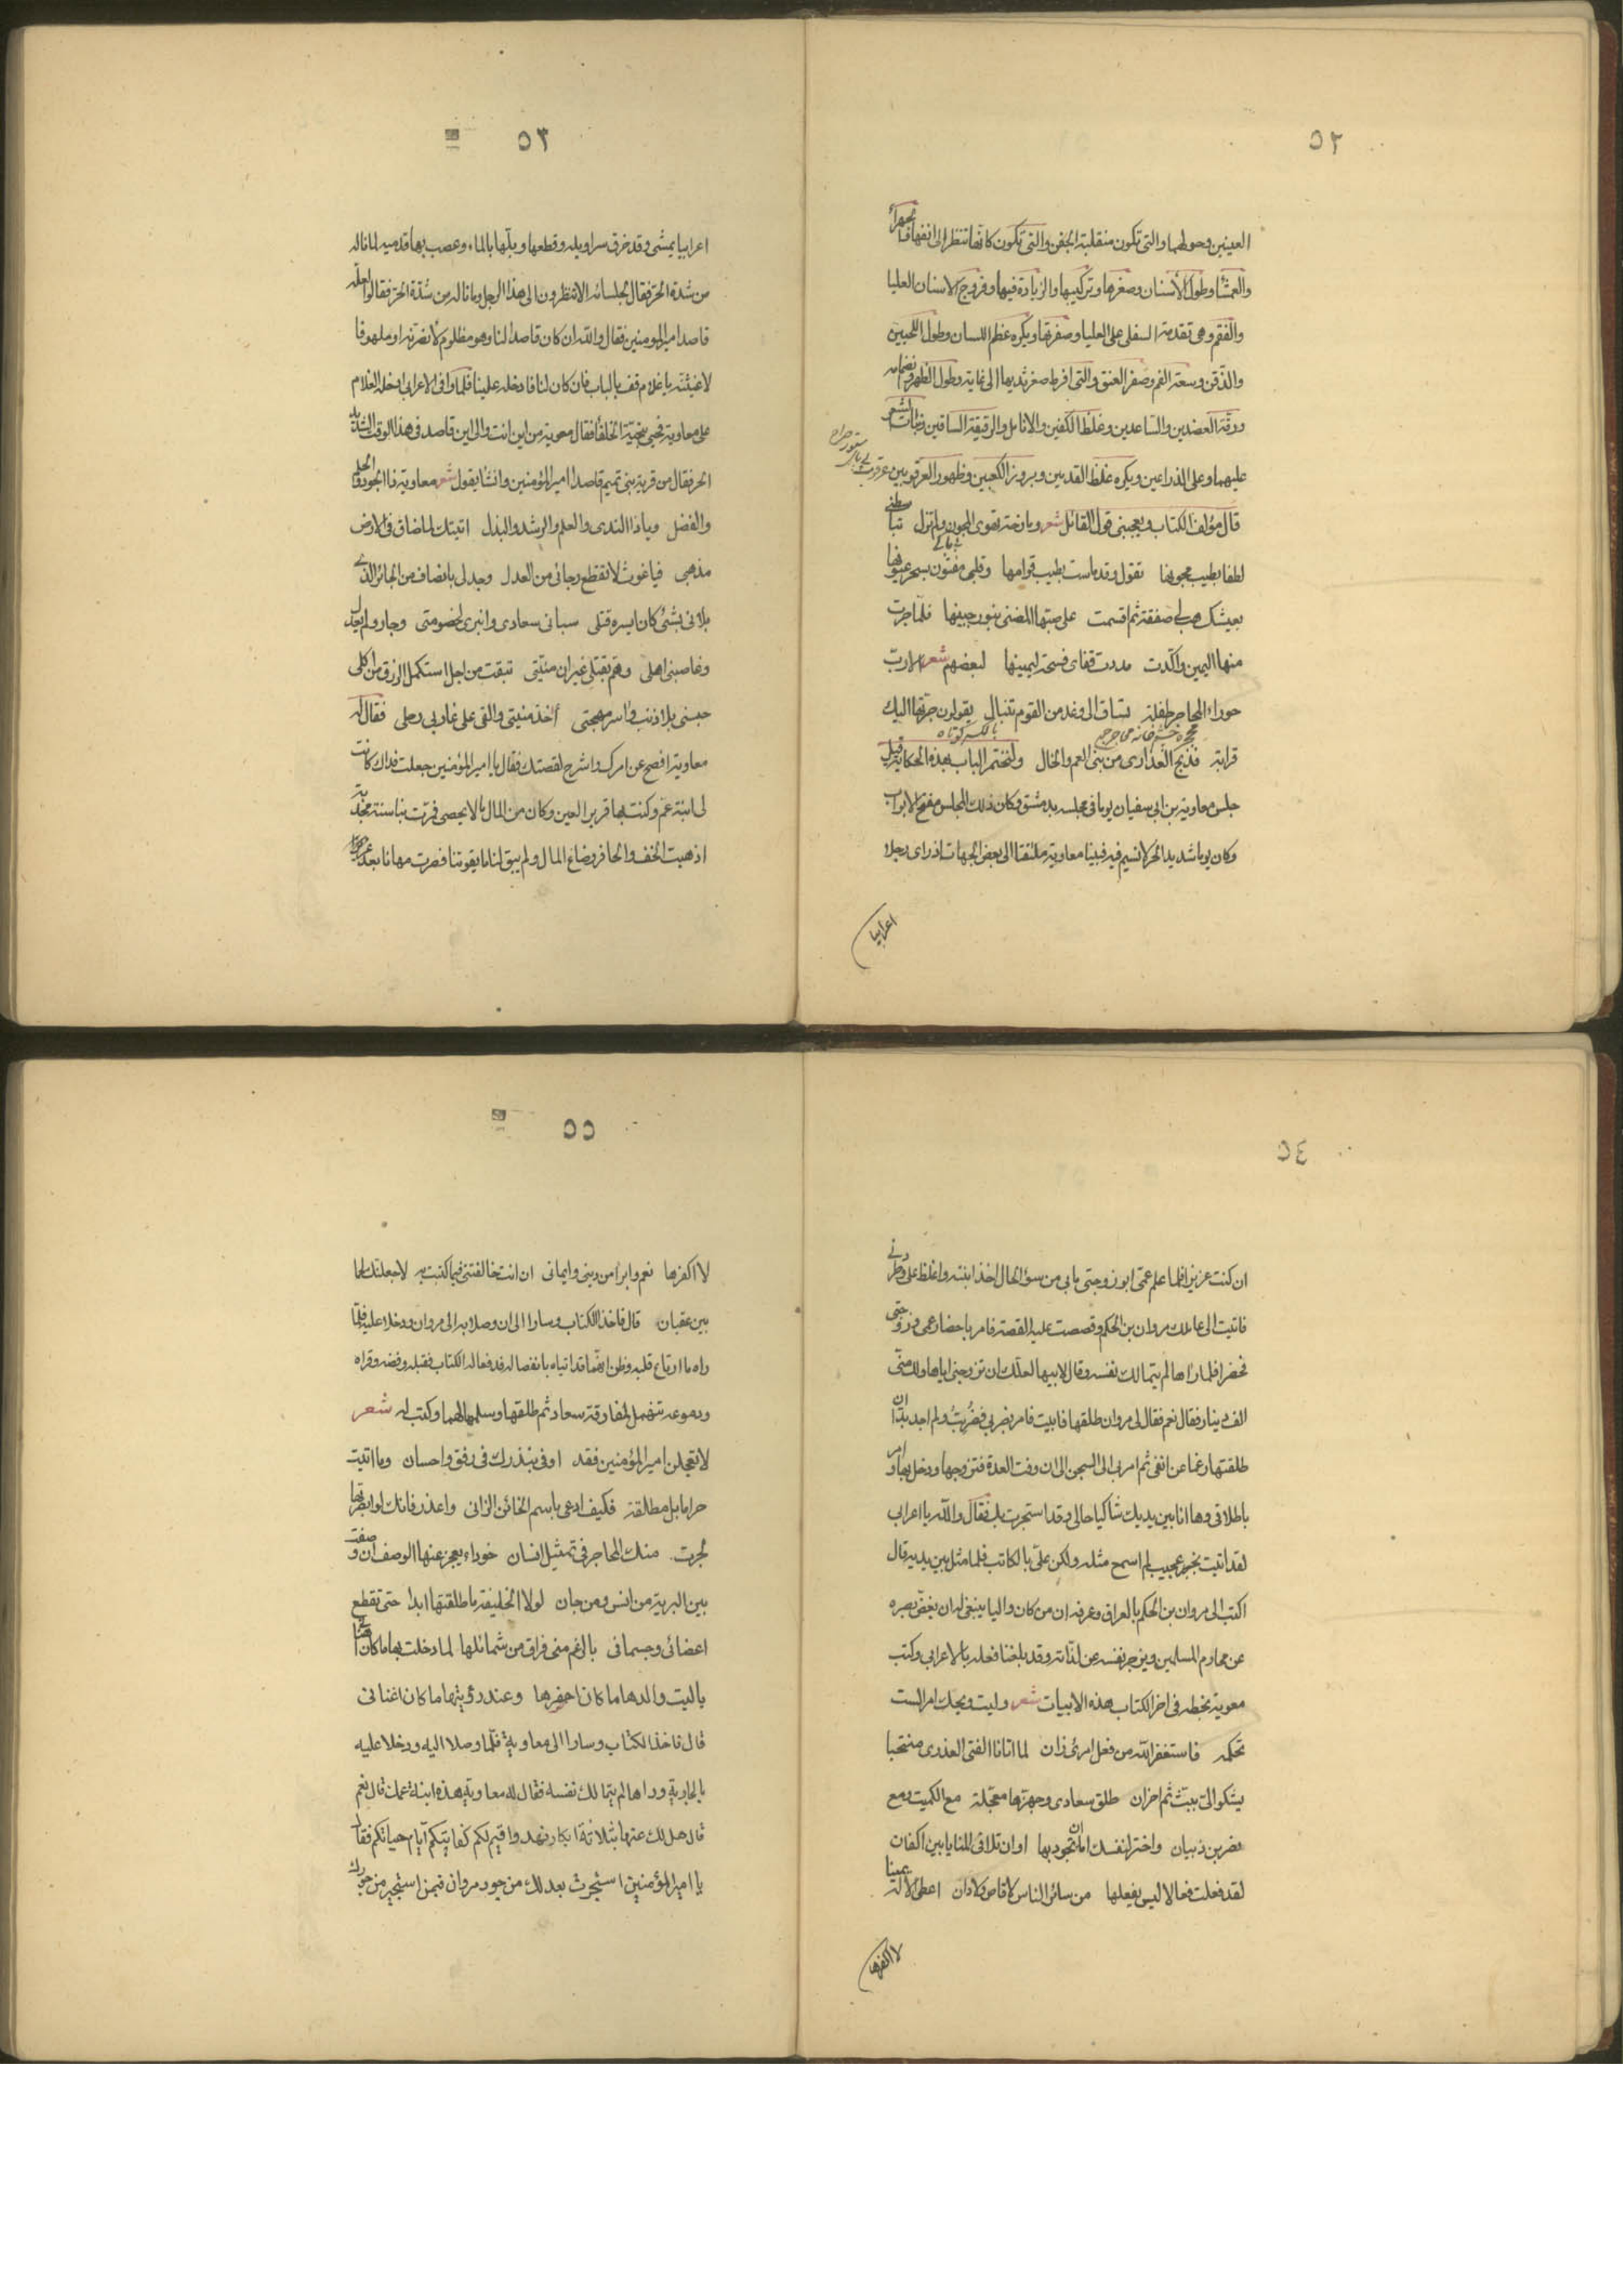 ٥٢
العينين وحوطهما والتى تكون منقلبة الجفن والتى تكون كانها تنظر الى انفها فجهرا
والعمشا وطول الأسنان وصغرها وتركيبها والزيادة فيها وفروج الاسنان العليا
والفقم وهى تقدمة السفلى على العليا وصفرتها ويكره عظم اللسان وطول اللحيين
والذقن وسعة الفم وصغر العنق والتى افرط صغر ثدييها الى غاية وطول الظهر
ودقة العضدين والساعدين وغلظ الكفين والانامل والرقيقة الساقين ونبات الشعر
عليهما وعلى الذراعين ويكره غلظ القدمين وبروز الكعبين وظهور العرقوبين
قال مؤلف الكتاب ويعجبنى قول القائل شعر وبارخته تقوى المجون ولم تزل
لطفا بطيب مجونها تقول وقد ماست بطيب قوامها وقلبى مفتون بسحر عيونها
بعيشك هب لى صفقة ثم اقسمت على صبها المضنى بنور جبينها فلما جرت
منها اليمين واكدت مددت قفاى فسحة ليمينها لبعضهم شعر الا رب
حوراء المحاجر طفلة تساق الى وغد من القوم تنبال يقولون جرتها اليك
قرابة فذبح العذارى من بنى العم والخال ولنختم الباب بهذه الحكاية قيل
جلس معاوية بن ابى سفيان يوما فى مجلسه بدمشق وكان ذلك المجلس مفتح الابواب
وكان يوما شديد الحر لا نسيم فيه فبينا معاوية ملتفتا الى بعض الجهات اذ راى رجلا
اعرابيا
٥٣
اعرابيا يمشى وقد خرق سراويله وقطعها وبلها بالماء وعصب بها قدميه لما ناله
من شدة الحر فقال لجلسائه الا تنظرون الى هذا الرجل وما ناله من شدة الحر فقالوا لعله
قاصد امير المومنين فقال والله ان كان قاصدا لنا وهو مظلوم لانصرنه او ملهوفا
لاغيثنه يا غلام قف بالباب فان كان لنا فادخله علينا فلما وافى الاعرابى ادخله الغلام
على معاوية فحيى بتحية الخلفا فقال معوية من اين انت والى اين قاصد فى هذا الوقت الشديد
الحر فقال من قرية بنى تميم قاصدا امير المؤمنين وانشا يقول شعر معاوية ذا الجود والحلم
والفضل وياذا الندى والعلم والرشد والبذل اتيتك لما ضاق فى الارض
مذهبى فياغوث لا تقطع رجائى من العدل وجد لى بانصاف من الجائر الذى
بلانى بشئ كان ايسره قتلى سبانى سعادى وانبرى لخصومتى وجار ولم يعدل
وغاصبنى اهلى وهم بقتلى غير ان منيتى تبقت من اجل استكمل الرزق من اكلى
حبسنى بلا ذنب واسر مهجتى أخذ منيتى والقى على غاربى رحلى فقال له
معاوية افصح عن امرك واشرح لقصتك فقال يا امير المؤمنين جعلت فداك كانت
لى ابنة عم وكنت بها قرير العين وكان من المال ما لا يحصى فمرت بنا سنة مجدبة
اذهبت الخف والحافر وضاع المال ولم يبق لنا ما يقوتنا فصرت مهانا بعد
٥٤
ان كنت عزيزا فلما علم عمى ابو زوجتى ما بى من سؤ الحال اخذ ابنته واغلظ على وطردنى
فاتيت الى عاملك مروان بن الحكم وقصصت عليه القصة فامر باحضار عمى وزوجتى
فحضرا فلما راها لم يتمالك نفسه وقال لابيها لعلك ان تزوجنى اياها ولك منى
الف دينار فقال نعم فقال لى مروان طلقها فابيت فامر بضربى فضُرِبتُ ولم اجد بدا ان
طلقتها رغما عن انفى ثم امر بى الى السجن الى ان وفت العدة فتزوجها ودخل بها وامر
باطلاقى وها انا بين يديك شاكيا حالى وقد استجرت بك فقال والله يا اعرابى
لقد اتيت بخبر عجيب لم اسمع مثله ولكن علىّ بالكاتب فلما مثل بين يديه قال
اكتب الى مروان بن الحكم بالعراق وعرفه ان من كان واليا ينبغى له ان يغض بصره
عن محارم المسلمين ويزجر نفسه عن لذاته وقد بلغنا فعله بالاعرابى وكتب
معوية بخطه فى اخر الكتاب هذه الابيات شعر وليت ويحك امرا لست
تحكمه فاستغفر الله من فعل امرئ زان لما اتانا الفتى العذرى منتحبا
يشكو الىّ ببث ثم احزان طلق سعادى وجهزها معجلة مع الكميت ومع
نصر بن ذبيان واختر لنفسك اما ان تجود بها او ان تلاقى المنايا بين اكفان
لقد فعلت فعالا ليس يفعلها من سائر الناس لا قاص ولا دان اعطى الاله يمينا
لا اكفرها
٥٥
لا اكفرها نعم وابرا من دينى وايمانى ان انت خالفتنى فيما كتبت به لاجعلنك لحما
بين عقبان قال فاخذا الكتاب وسارا الى ان وصلا به الى مروان ودخلا عليه فلما
راهما ارتاع قلبه وظن انهما قد اتياه بانفصاله فدفعا له الكتاب فقبله وفضه وقراه
ودموعه تنهمل لمفارقة سعاد ثم طلقها وسلمها لهما وكتب له شعر
لا تعجلن امير المؤمنين فقد اوفى بنذرك فى رفق واحسان وما اتيت
حراما بل مطلقة فكيف ادعى باسم الخائن الزانى واعذر فانك لو ابصرتها
لجرت منك المحاجر فى تمثيل انسان حوراء يعجز عنها الوصف ان وصفت
بين البرية من انس ومن جان لولا الخليفة ما طلقتها ابدا حتى تقطع
اعضائى وجسمانى بالرغم منى فراق من شمائلها لما دخلت بها ما كان
ياليت والدها ما كان احضرها وعند رؤيتها ما كان اغنانى
قال فاخذا لكتاب وسارا الى معاوية فلما وصلا اليه ودخلا عليه
بالجارية وراها لم يتمالك نفسه فقال له معاوية هذه ابنة عمك قال نعم
قال هل لك عنها بثلاثة ابكار نهد واقيم لكم كفايتكم أيام حياتكم فقال
يا امير المؤمنين استجرت بعدلك من جور مروان فبمن استجير من جورك